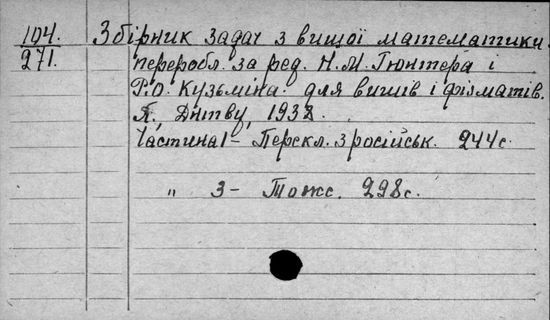 104.
271.
Збірник задач з вищої математики
переробл. за ред. Н.М. Гюнтера і
Р.О. Кузьміна для вишів і фізматів.
Днтву, 1938.
Частина 1 - Перекл. з російськ. 244 с.
" 3 - Тож с. 298 с.